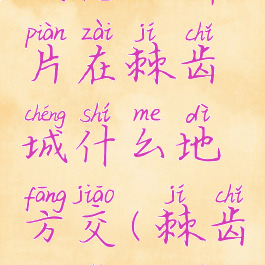 piàn zài jí chǐ
片在棘齿
chéng shí me dì
城什么地
fāng jiāo jí chǐ
方交(棘齿